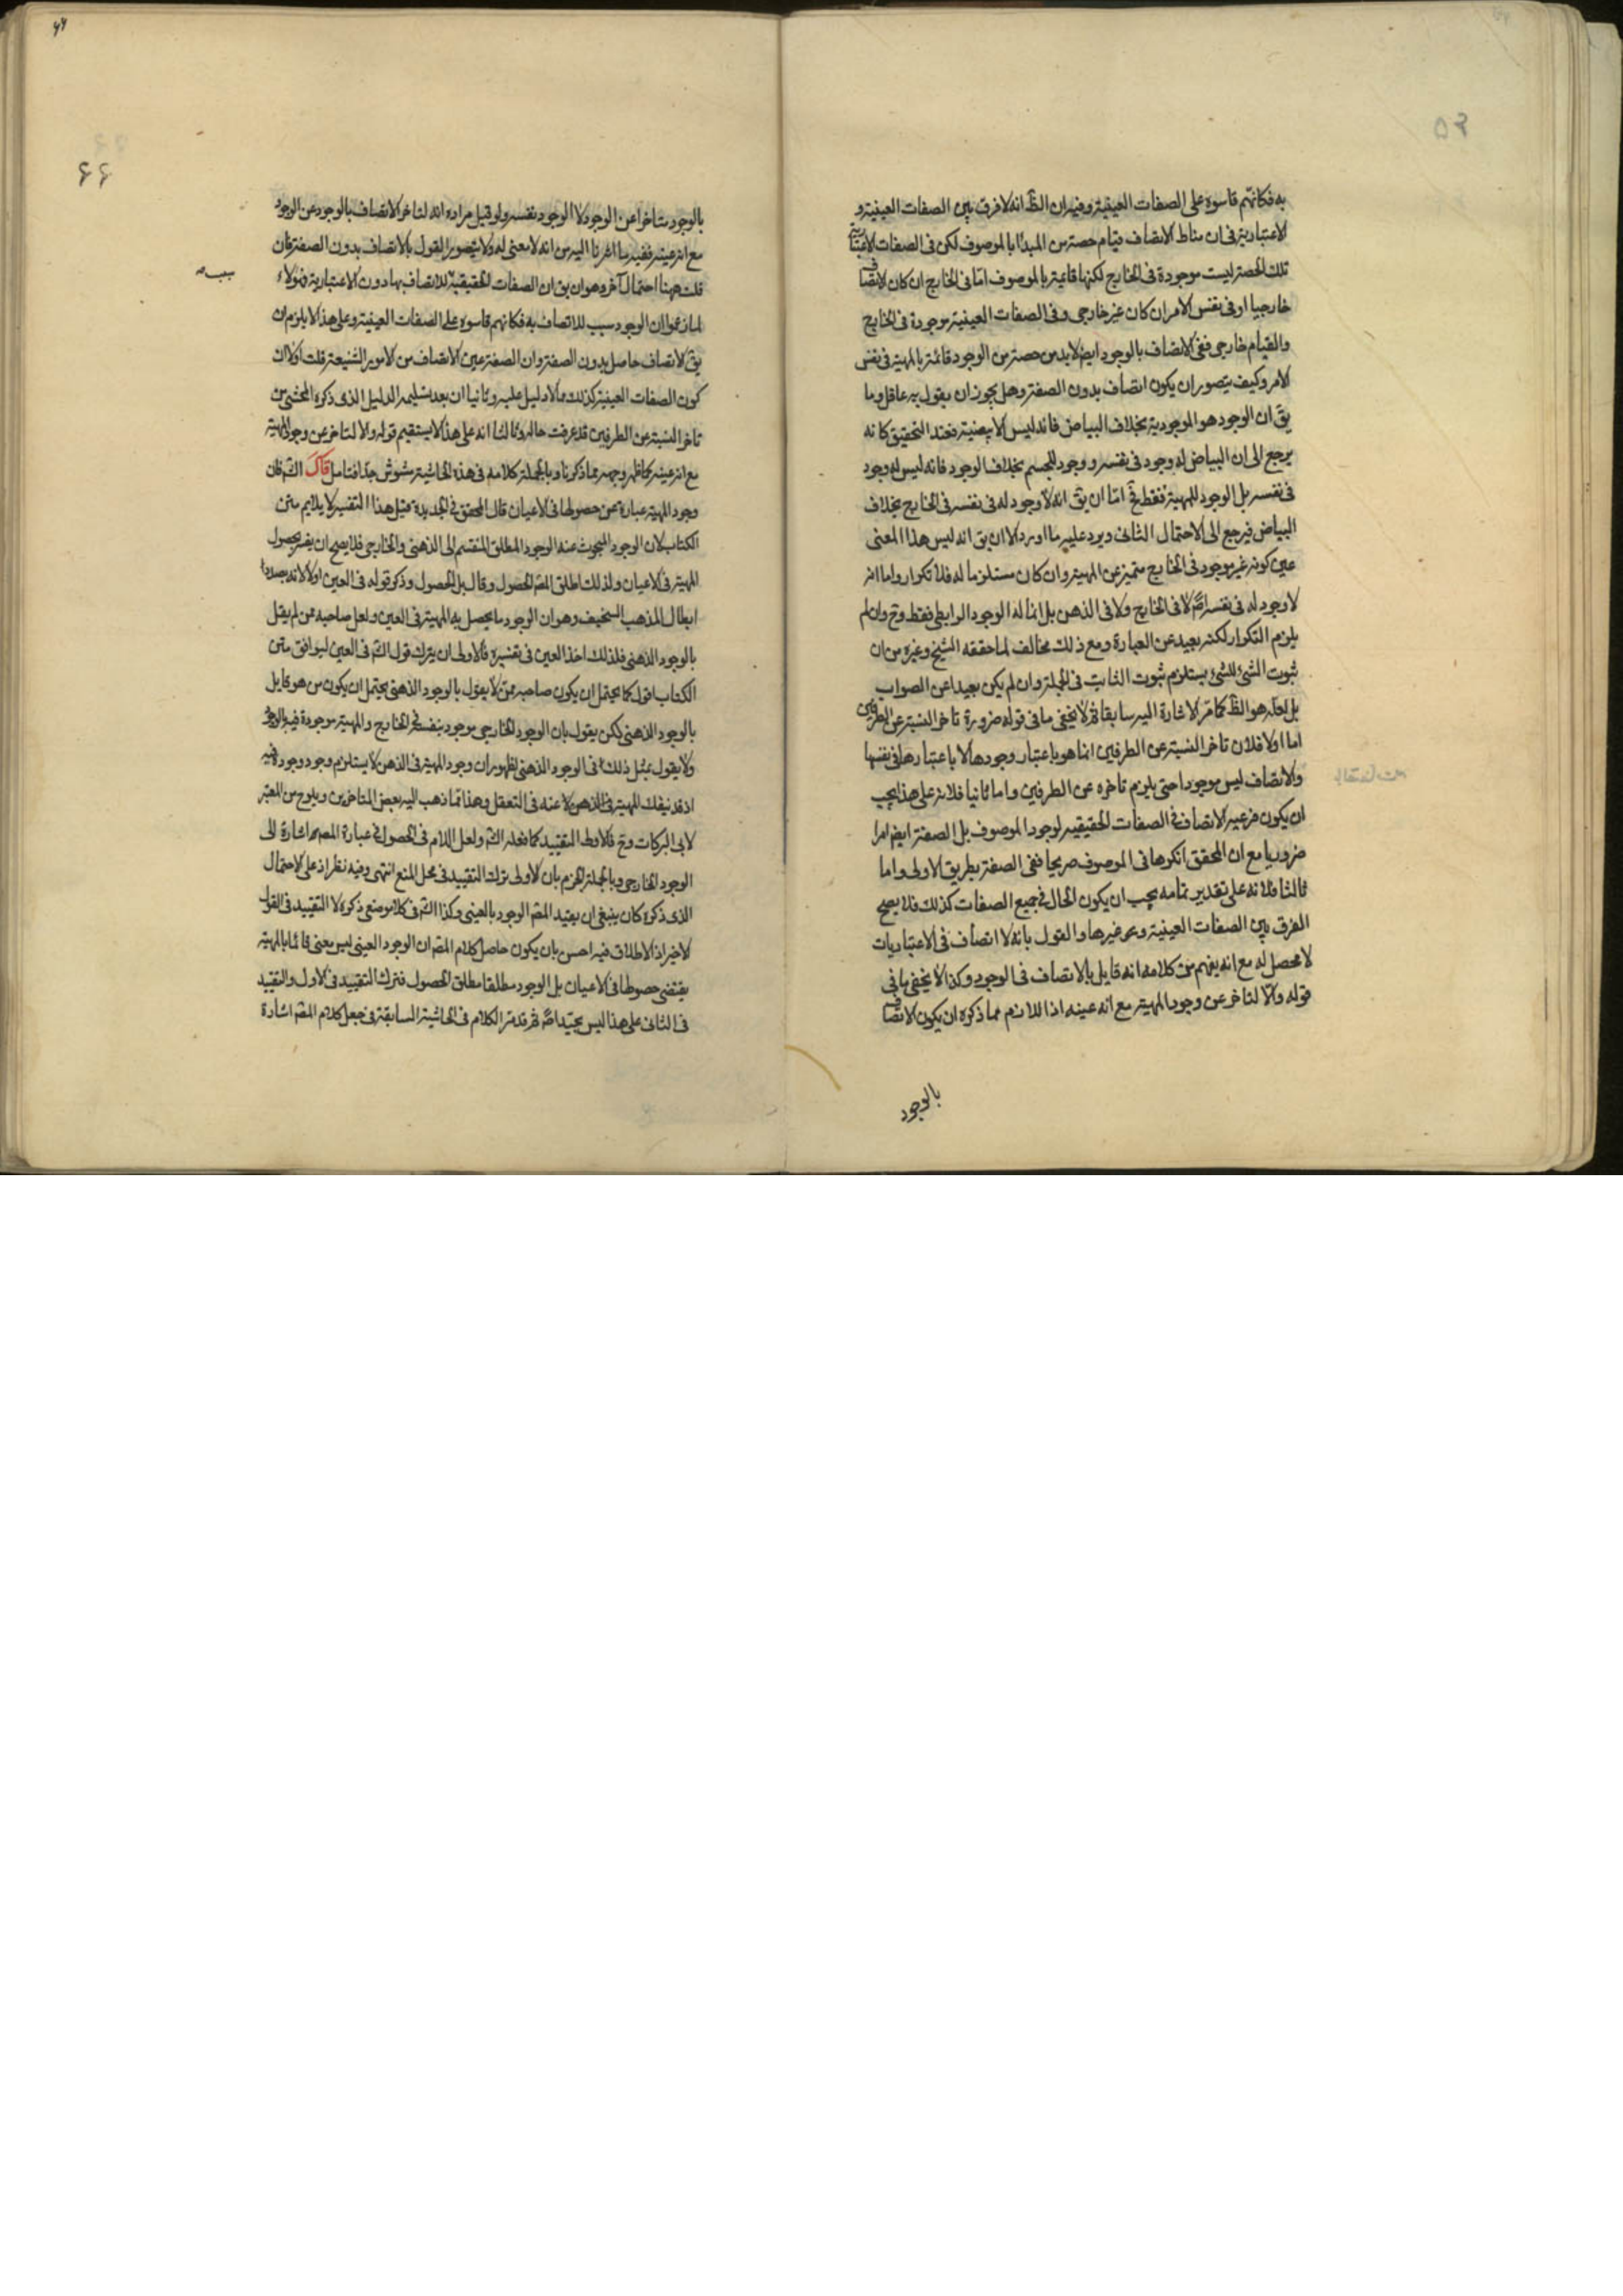 به فكانهم قاسوه على الصفات العينية وفيه ان الظ انه لا فرق بين الصفات العينية و
الاعتبارية فى ان مناط الاتصاف قيام حصة من المبدأ بالموصوف لكن فى الصفات الاعتبارية
تلك الحصة ليست موجودة فى الخارج لكنها قائمة بالموصوف اما فى الخارج ان كان الاتصاف
خارجيا او فى نفس الامر ان كان غير خارجى وفى الصفات العينية موجودة فى الخارج
والقيام خارجى ففى الاتصاف بالوجود ايض لابد من حصة من الوجود قائمة بالمهية فى نفس
الامر وكيف يتصور ان يكون اتصاف بدون الصفة وهل يجوز ان يقول به عاقل وما
يق ان الوجود هو الموجودية بخلاف البياض فانه ليس الابيضية فعند التحقيق كانه
يرجع الى ان البياض له وجود فى نفسه ووجود للجسم بخلاف الوجود فانه ليس له وجود
فى نفسه بل الوجود للمهية فقط فح اما ان يق انه لا وجود له فى نفسه فى الخارج بخلاف
البياض فيرجع الى الاحتمال الثانى ويرد عليه ما اورد الا ان يق انه ليس هذا المعنى
عين كونه غير موجود فى الخارج متميز عن المهية وان كان مستلزما له فلا تكرار واما انه
لا وجود له فى نفسه اصلا لا فى الخارج ولا فى الذهن بل انما له الوجود الرابطى فقط وح وان لم
يلزم التكرار لكنه بعيد عن العبارة ومع ذلك مخالف لما حققه الشيخ وغيره من ان
ثبوت الشئ للشئ يستلزم ثبوت الثابت فى الجملة وان لم يكن بعيدا عن الصواب
بل لعله هو الظ كما مر الاشارة اليه سابقا ثم لا يخفى ما فى قوله ضرورة تاخر النسبة عن الطرفين
اما اولا فلان تاخر النسبة عن الطرفين انما هو باعتبار وجودها لا باعتبارها فى نفسها
والاتصاف ليس موجودا حتى يلزم تاخره عن الطرفين واما ثانيا فلانه على هذا يجب
ان يكون فرعية الاتصاف فى الصفات الحقيقية لوجود الموصوف بل الصفة ايض امرا
ضروريا مع ان المحقق انكرها فى الموصوف صريحا ففى الصفة بطريق الاولى واما
ثالثا فلانه على تقدير تمامه يجب ان يكون الحال فى جميع الصفات كذلك فلا يصح
الفرق بين الصفات العينية وغيرها والقول بانه لا اتصاف فى الاعتباريات
لا محصل له مع انه يفهم من كلامه انه قايل بالاتصاف فى الوجود وكذا لا يخفى ما فى
قوله والا لتاخر عن وجود المهية مع انه عينه اذ اللازم مما ذكره ان يكون الاتصاف
بالوجود
٦٦
بالوجود متاخرا عن الوجود لا الوجود نفسه ولو قيل مراده انه لتاخر الاتصاف بالوجود عن الوجود
مع انه عينه ففيه ما اشرنا اليه من انه لا معنى له ولا يتصور القول بالاتصاف بدون الصفة فان
قلت ههنا احتمال آخر وهو ان يق ان الصفات الحقيقية للاتصاف بها دون الاعتبارية فهؤلاء
سبب
لما زعموا ان الوجود سبب للاتصاف به فكانهم قاسوه على الصفات العينية وعلى هذا لا يلزم ان
يق الاتصاف حاصل بدون الصفة وان الصفة عين الاتصاف من الامور الشنيعة قلت اولا ان
كون الصفات العينية كذلك مما لا دليل عليه وثانيا ان بعد تسليمه الدليل الذى ذكره المحشى من
تاخر النسبة عن الطرفين قد عرفت حاله وثالثا انه على هذا لا يستقيم قوله والا لتاخر عن وجود المهية
مع انه عينه كما ظهر وجهه مما ذكرنا وبالجملة كلامه فى هذه الحاشية مشوش جدا فتامل قال الش فان
وجود المهية عبارة عن حصولها فى الاعيان قال المحقق فى الجديدة قيل هذا التفسير لا يلايم متن
الكتاب لان الوجود المبحوث عنه الوجود المطلق المنقسم الى الذهنى والخارجى فلا يصح ان يفسر بحصول
المهية فى الاعيان ولذلك اطلق المص الحصول وقال بل الحصول وذكر قوله فى العين اولا لانه بصدد
ابطال المذهب السخيف وهو ان الوجود ما يحصل به المهية فى العين ولعل صاحبه ممن لم يقل
بالوجود الذهنى فلذلك اخذ العين فى تفسيره فالاولى ان يترك قول الش فى العين ليوافق متن
الكتاب اقول كما يحتمل ان يكون صاحبه ممن لا يقول بالوجود الذهنى يحتمل ان يكون من هو قايل
بالوجود الذهنى لكن يقول بان الوجود الخارجى موجود بنفسه فى الخارج والمهية موجودة فيه بالوجود
ولا يقول بمثل ذلك فى الوجود الذهنى لظهور ان وجود المهية فى الذهن لا يستلزم وجود وجوده فيه
اذ قد ينفك المهية فى الذهن لا عنه فى التعقل وهذا مما ذهب اليه بعض المتاخرين ويلوح من المعتبر
لابى البركات وح فالاولى التقييد كما فعله الش ولعل اللام فى الحصول فى عبارة المص اشارة الى
الوجود الخارجى وبالجملة الجزم بان الاولى ترك التقييد فى محل المنع انتهى وفيه نظر اذ على الاحتمال
الذى ذكره كان ينبغى ان يقيد المص الوجود بالعينى وكذا الش فى كلا موضعى ذكره لا التقييد فى القول
الاخير اذ الاطلاق فيه احسن بان يكون حاصل كلام المص ان الوجود العينى ليس معنى قائما بالمهية
يقتضى حصولها فى الاعيان بل الوجود مطلقا مطلق الحصول فترك التقييد فى الاول والتقييد
فى الثانى على هذا ليس بجيد اصلا ثم قد مر الكلام فى الحاشية السابقة فى جعل كلام المص اشارة